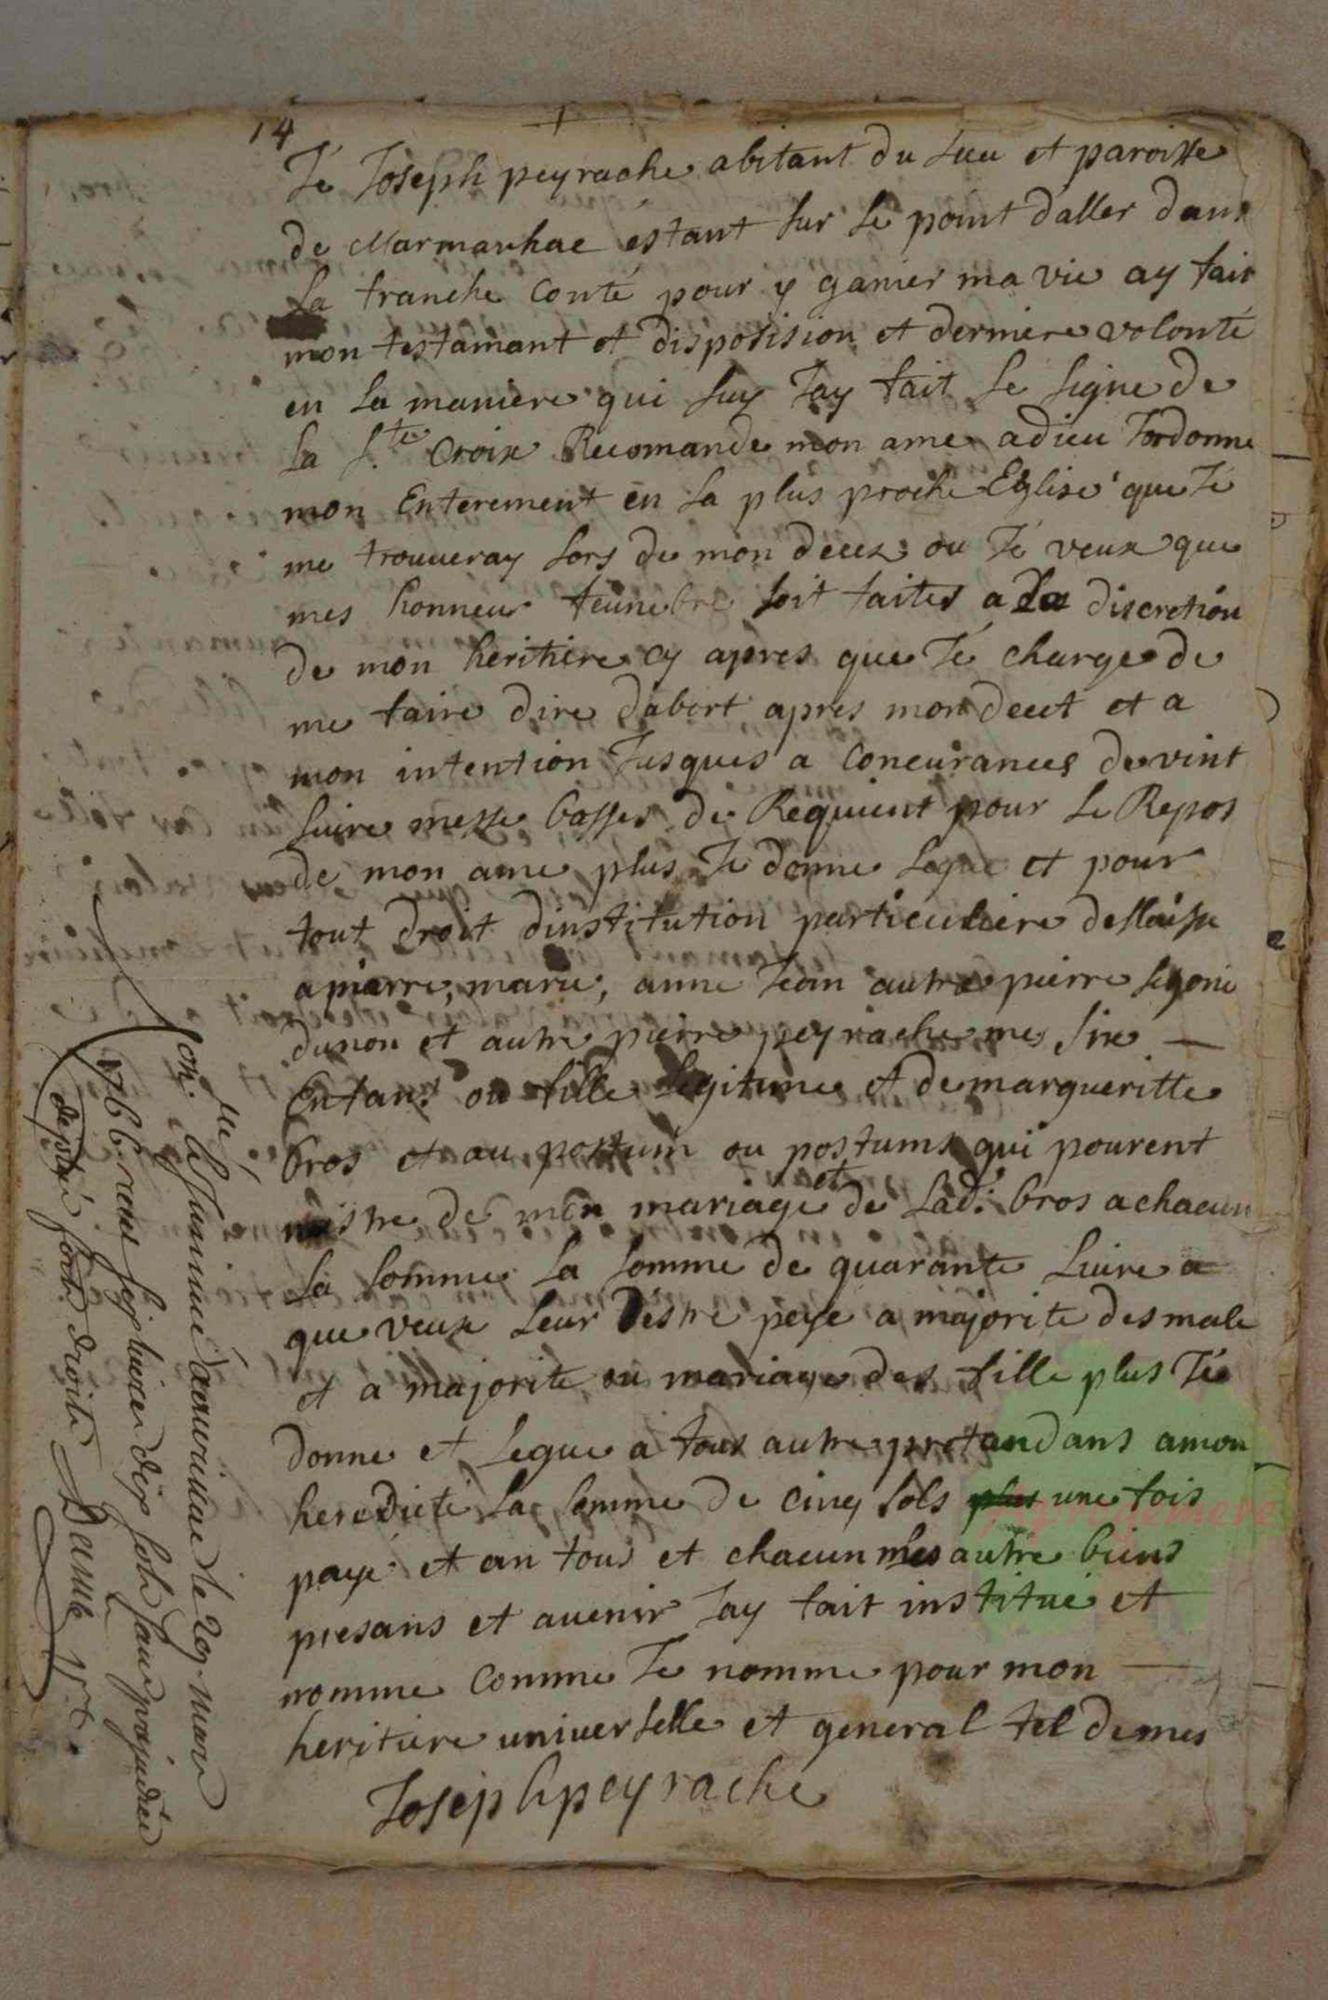 14
Je Joseph peyrache abitant du lieu et paroisse
de Marmanhac estant sur le point daller dans
la franche Conté pour y ganier ma vie ay fait
mon testamant et disposision et derniere volonté
en la maniere qui suy Jay fait le signe de
la S.te Croix Recomande mon ame adieu Jordonne
mon Enterement en la plus proche Eglise que Je
me trouveray lors de mon deces ou Je veux que
mes honneur feunebre soit faites a la discretion
de mon heritiere cy apres que Je charge de
me faire dire dabort apres mon decet et a
mon intention Jusques a Concurances de vint
livre messe basses de Requient pour le Repos
de mon ame plus Je donne legue et pour
tout droit dinstitution particuliere
a pierre, marie, anne Jean autre pierre
dunon et autre pierre peyrache mes six
Enfans ou fille legitime et de margueritte
bros et au postum ou postums qui pourent
naistre de mon mariage et de lad. bros a chacun
la somme la somme de quarante livre
que veux leur destre peye a majorite des male
et a majorite ou mariage des fille plus Je
donne et legue a tous autre pretandans a mon
heredicté la somme de cinq sols plus une fois
payé et an tous et chacun mes autre biens
presans et avenir Jay fait institue et
nomme Comme Je nomme pour mon
heritiere universelle et general tel de mes
Joseph peyrache
Con.lé & Insinué a aurillac le 29 mars
1766. receu sept livres dix sols sans prejudice
de plus forts droits
Aprogemere